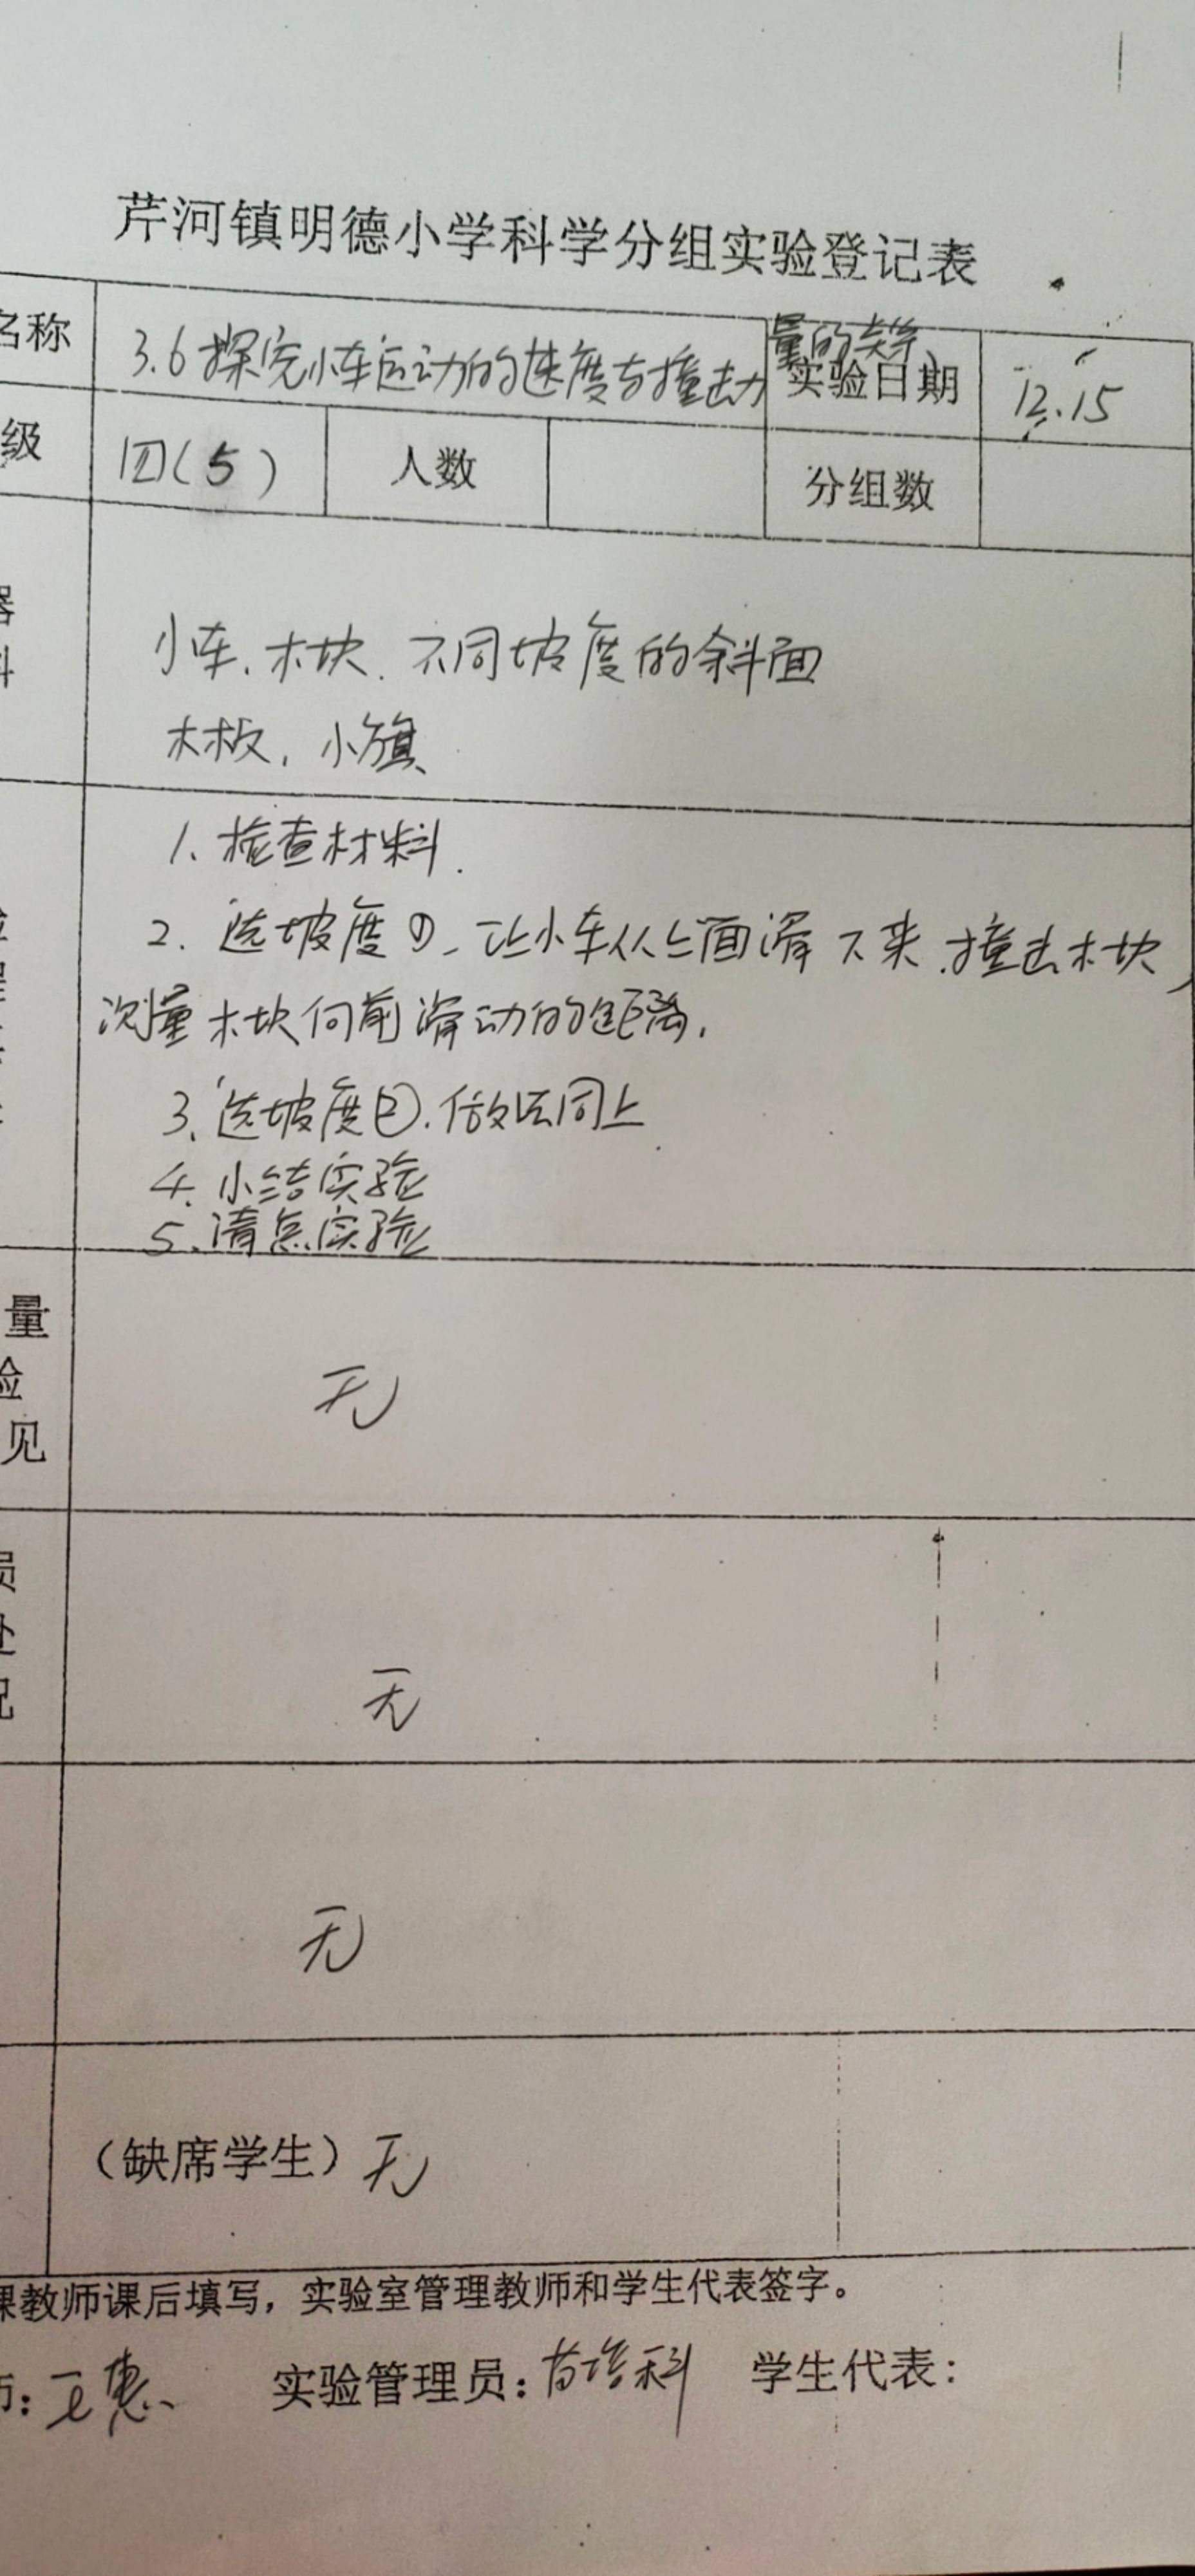 芹河镇明德小学科学分组实验登记表
名称 3.6探究小车运动的速度与撞击力量的关系 实验日期 12.15
级 四(5) 人数 分组数
小车、木块、不同坡度的斜面
木板、小旗
1、检查材料.
2. 选坡度①、让小车从上面滑下来.撞击木块,
测量木块向前滑动的距离.
3、选坡度②.做法同上
4、小结实验
5、清点实验
量
验
见
无
员
处
况
无
无
(缺席学生)无
课教师课后填写,实验室管理教师和学生代表签字。
师: 王惠 实验管理员: 学生代表: